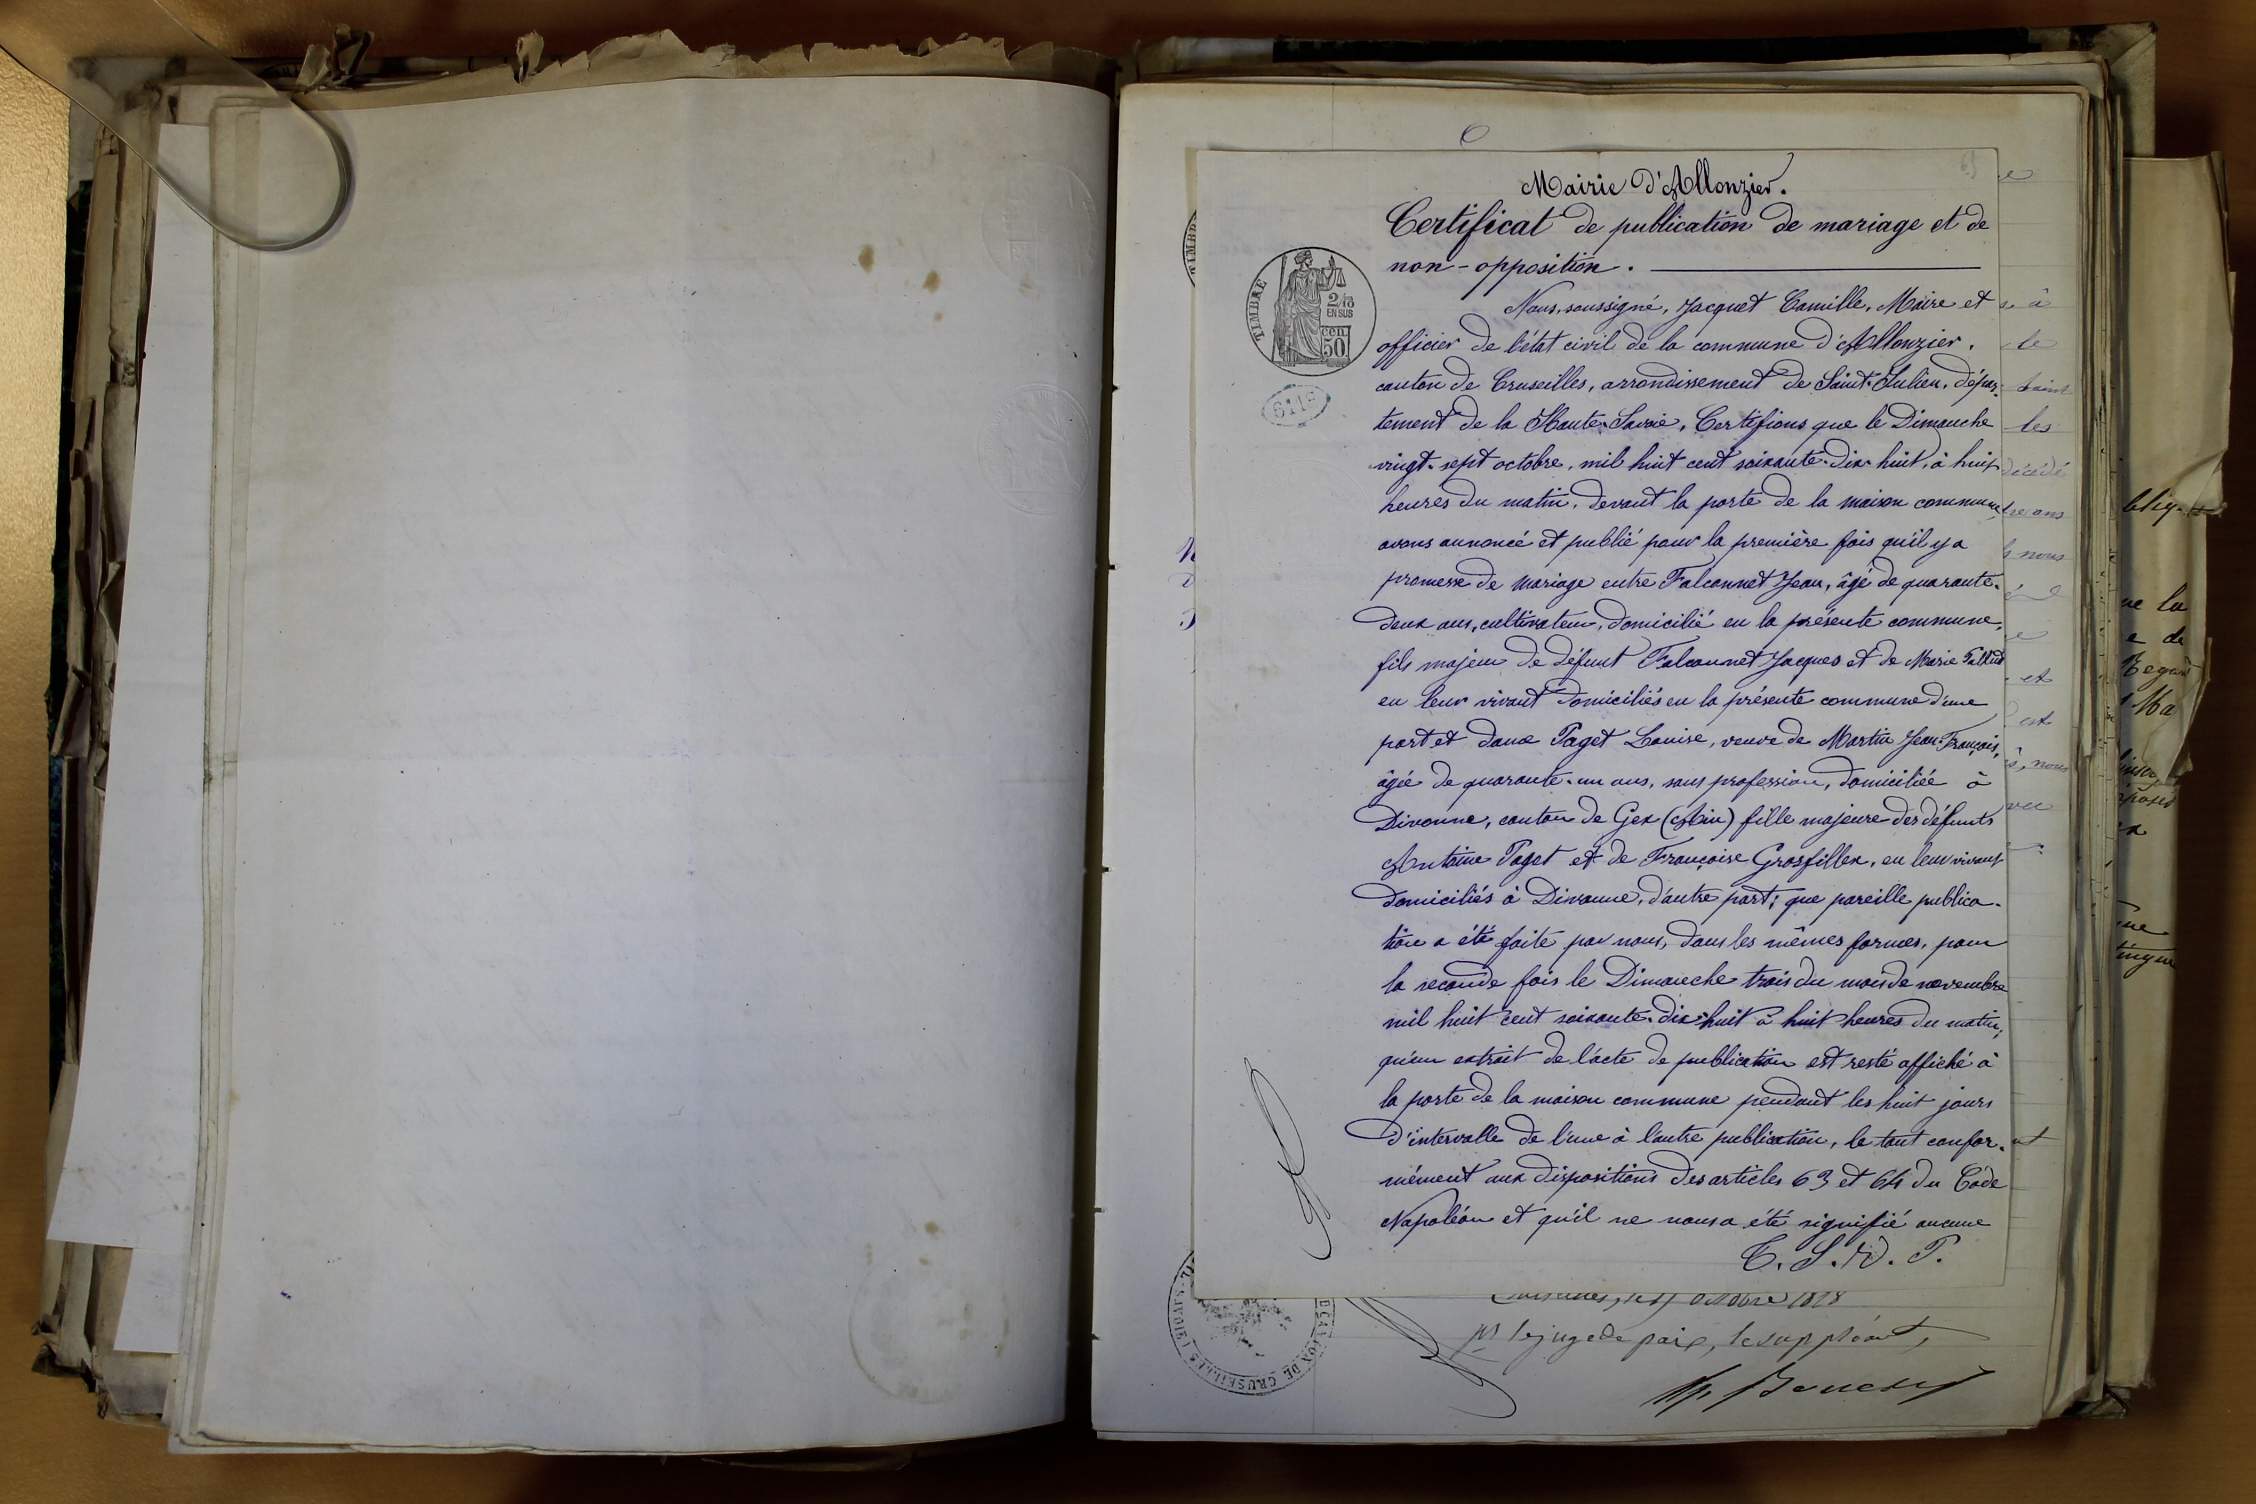 Mairie d'Allonzier.
Certificat de publication de mariage et de
non-opposition.
TIMBRE
2/10
EN SUS
cen
50
Nous, soussigné, Jacquet Camille, Maire et
officier de l'état civil de la commune d'Allonzier.
canton de Cruseilles, arrondissement de Saint-Julien, dépar-
tement de la Haute-Savoie, Certifions que le Dimanche
vingt-sept octobre, mil huit cent soixante-dix-huit, à huit
heures du matin, devant la porte de la maison commune,
avons annoncé et publié pour la première fois qu'il y a
promesse de mariage entre Falconnet Jean, âgé de quarante-
deux ans, cultivateur, domicilié en la présente commune,
fils majeur de défunt Falconnet Jacques et de Marie
en leur vivant domiciliés en la présente commune d'une
part et dame Paget Louise, veuve de Martin Jean-François,
âgée de quarante-un ans, sans profession, domiciliée à
Divonne, canton de Gex (Ain) fille majeure des défunts
Antoine Paget et de Françoise Grosfillex, en leur vivant
domiciliés à Divonne, d'autre part; que pareille publica-
tion a été faite par nous, dans les mêmes formes, pour
la seconde fois le Dimanche trois du mois de novembre
mil huit cent soixante-dix-huit à huit heures du matin,
qu'un extrait de l'acte de publication est resté affiché à
la porte de la maison commune pendant les huit jours
d'intervalle de l'une à l'autre publication, le tout confor-
mément aux dispositions des articles 63 et 64 du Code
Napoléon et qu'il ne nous a été signifié aucune
T. S. V. P.
octobre 1878
pr le juge de paix, le suppléant,
CANTON DE CRUSEILLES